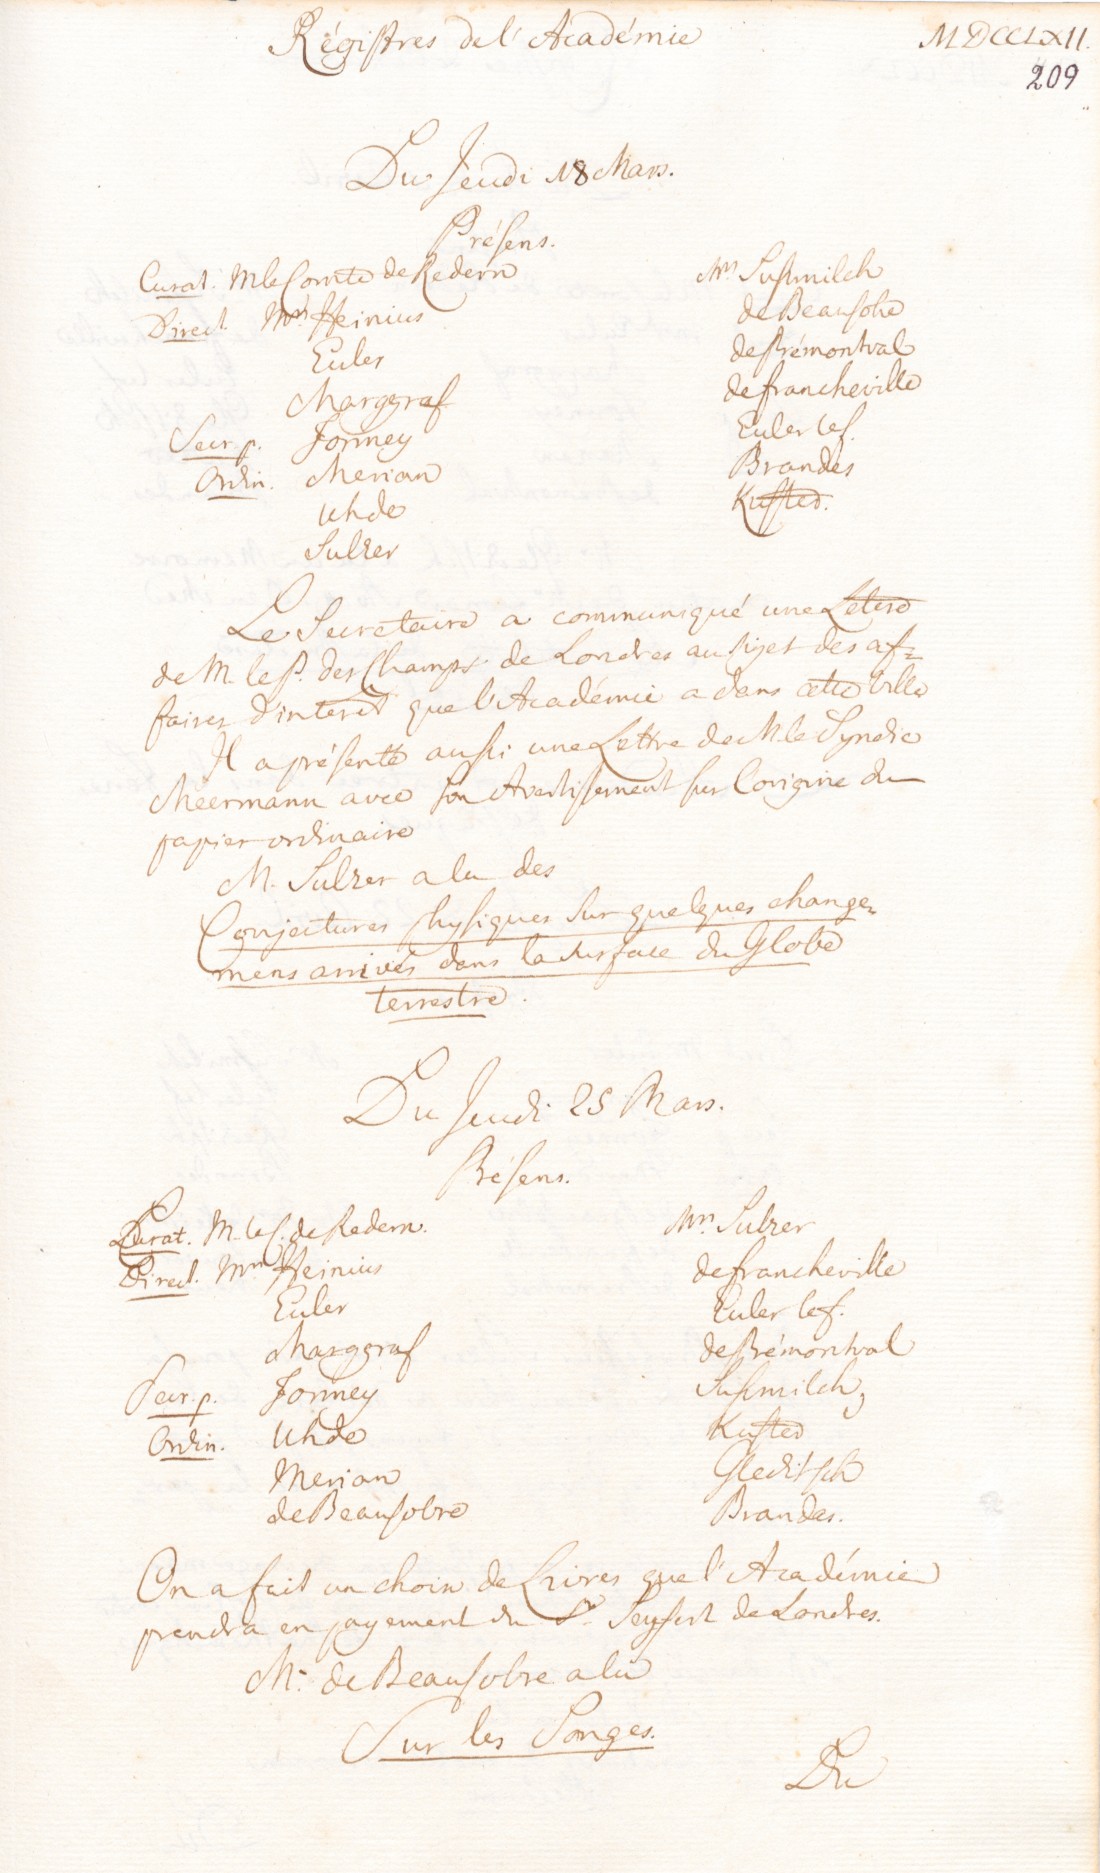 Régistres de l'Académie
MDCCLXII.
209
Du Jeudi 18 Mars.
Présens.
Curat. M le Comte de Redern
Direct. Mrs Heinius
Euler
Marggraf
Secr. p. Formey
Ordin. Merian
Uhde
Sulzer
Mrs Sussmilch
de Beausobre
de Prémontval
de Francheville
Euler le f.
Brandes
Kuster.
Le Secretaire a communiqué une Lettre
de M. le P. des Champs de Londres au sujet des af-
faires d'interet que l'Académie a dans cette Ville
Il a présenté aussi une Lettre de M. le Syndic
Meermann avec son Avertissement sur l'origine du
papier ordinaire
M. Sulzer a lu des
Conjectures physiques sur quelques change-
mens arrivés dans la surface du Globe
terrestre.
Du Jeudi 25 Mars.
Présens.
Curat. M. le C. de Redern.
Direct. Mrs Heinius
Euler
Marggraf
Secr. p. Formey
Ordin. Uhde
Merian
de Beausobre
Mrs Sulzer
de Francheville
Euler le f.
de Prémontval
Sussmilch,
Kuster
Gleditsch
Brandes.
On a fait un choix de Livres que l'Académie
prendra en payement du Sr. Seyfert de Londres.
Mr. de Beausobre a lu
Sur les Songes.
Du